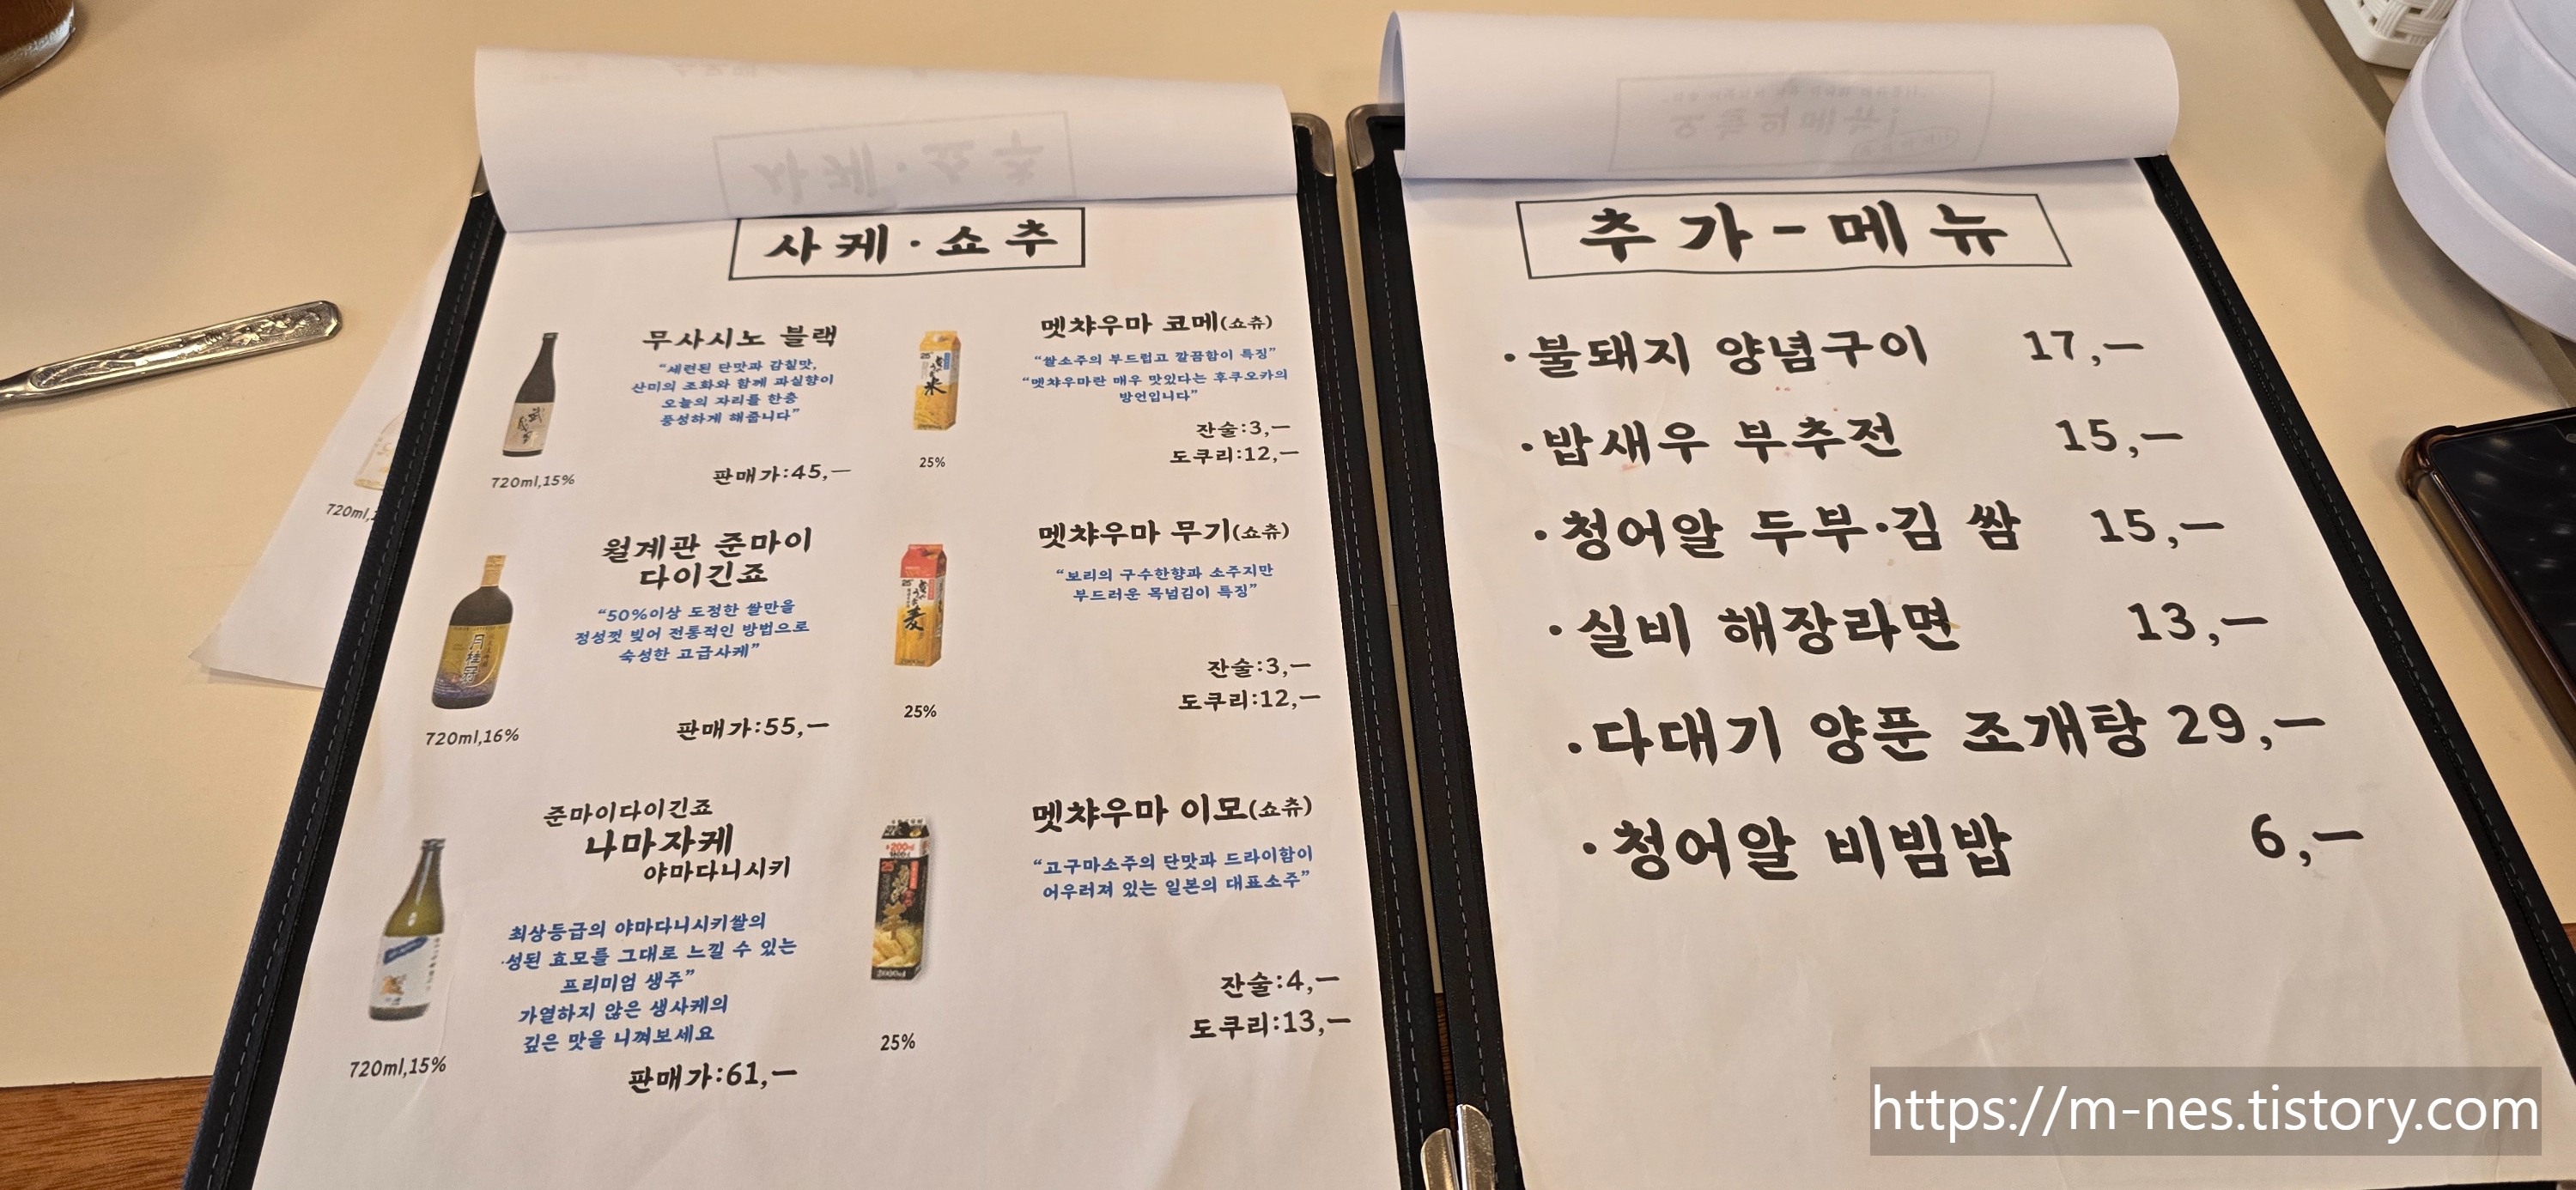 사케·쇼추
무사시노 블랙
“세련된 단맛과 감칠맛,
산미의 조화와 함께 과실향이
오늘의 자리를 한층
풍성하게 해줍니다”
720ml,15%
판매가:45,—
월계관 준마이
다이긴죠
“50%이상 도정한 쌀만을
정성껏 빚어 전통적인 방법으로
숙성한 고급사케”
月桂冠
720ml,16%
판매가:55,—
준마이다이긴죠
나마자케
야마다니시키
최상등급의 야마다니시키쌀의
성된 효모를 그대로 느낄 수 있는
프리미엄 생주”
가열하지 않은 생사케의
깊은 맛을 니껴보세요
720ml,15%
판매가:61,—
멧챠우마 코메(쇼츄)
“쌀소주의 부드럽고 깔끔함이 특징”
“멧챠우마란 매우 맛있다는 후쿠오카의
방언입니다”
米
25%
잔술:3,—
도쿠리:12,—
멧챠우마 무기(쇼츄)
“보리의 구수한향과 소주지만
부드러운 목넘김이 특징”
麦
25%
잔술:3,—
도쿠리:12,—
멧챠우마 이모(쇼츄)
“고구마소주의 단맛과 드라이함이
어우러져 있는 일본의 대표소주”
25%
잔술:4,—
도쿠리:13,—
720ml,
추가-메뉴
·불돼지 양념구이 17,—
·밥새우 부추전 15,—
·청어알 두부·김 쌈 15,—
·실비 해장라면 13,—
·다대기 양푼 조개탕 29,—
·청어알 비빔밥 6,—
https://m-nes.tistory.com